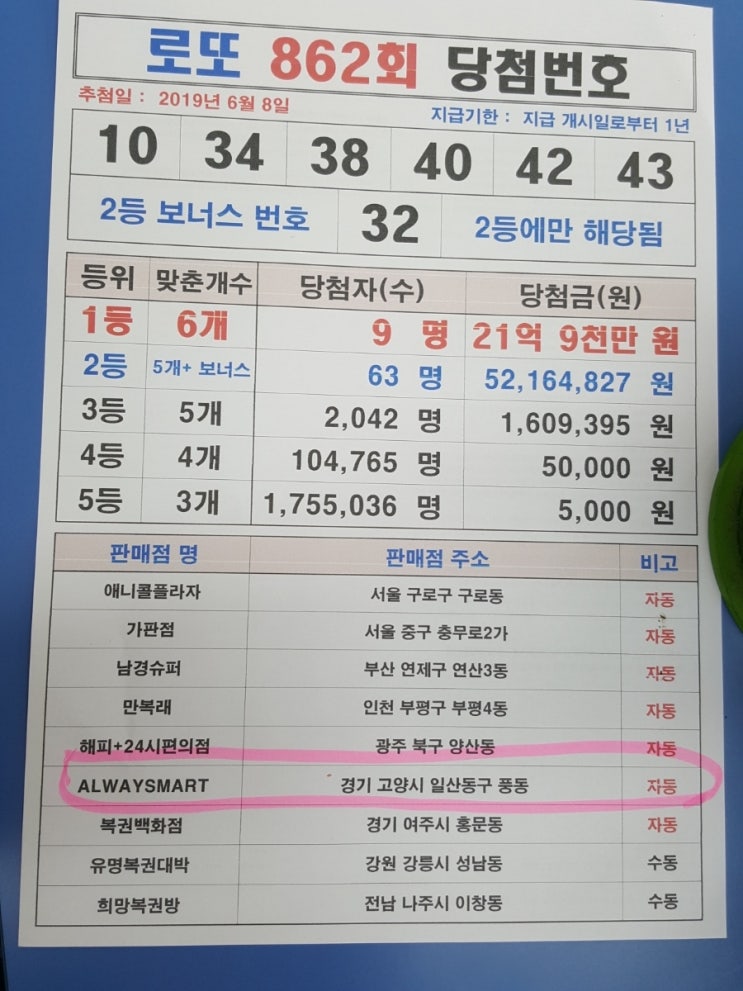 로또 862회 당첨번호
추첨일 : 2019년 6월 8일
지급기한 : 지급 개시일로부터 1년
10 34 38 40 42 43
2등 보너스 번호 32 2등에만 해당됨
등위 맞춘개수 당첨자(수) 당첨금(원)
1등 6개 9 명 21억 9천만 원
2등 5개+ 보너스 63 명 52,164,827 원
3등 5개 2,042 명 1,609,395 원
4등 4개 104,765 명 50,000 원
5등 3개 1,755,036 명 5,000 원
판매점 명 판매점 주소 비고
애니콜플라자 서울 구로구 구로동 자동
가판점 서울 중구 충무로2가 자동
남경슈퍼 부산 연제구 연산3동 자동
만복래 인천 부평구 부평4동 자동
해피+24시편의점 광주 북구 양산동 자동
ALWAYSMART 경기 고양시 일산동구 풍동 자동
복권백화점 경기 여주시 홍문동 자동
유명복권대박 강원 강릉시 성남동 수동
희망복권방 전남 나주시 이창동 수동